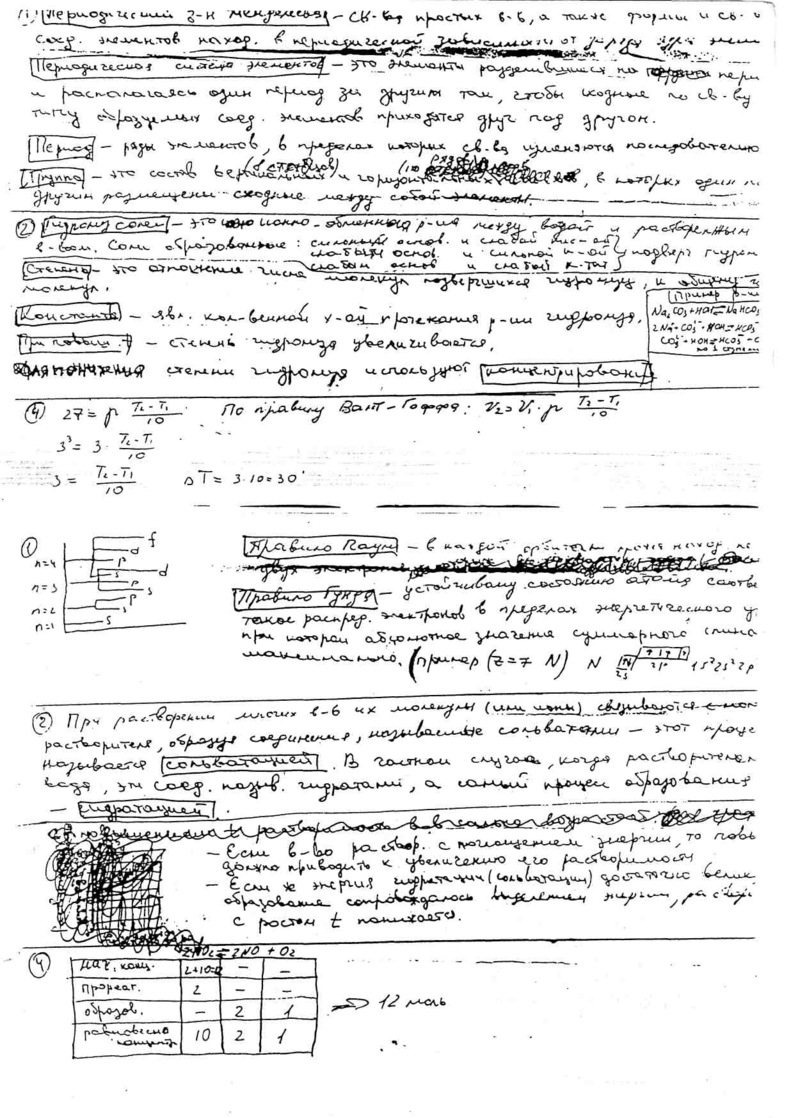 Периодический з-н Менделеева – св-ва простых в-в, а также формы и св-
соед. элементов наход. в периодической зависимости от
Периодическая система элементов – это элементы разделившиеся по
и располагаясь один период за другим так, чтобы сходные по св-ву
типу образуемых соед. элементов приходятся друг под другом.
Период – ряды элементов, в пределах которых св-ва изменяются последовательно
Группа – это состав вертикальных (столбцов) и горизонтальных, в которых один
другим размещены сходные между собой
② Гидролиз солей – это ионно-обменная р-ия между водой и растворенным
в-вом. Соли образованные: сильным основ. и слабой кис-той
слабым основ и сильной к-той подверг.
слабым основ и слабой к-той
Степень – это отношение числа молекул подвергшихся гидролизу, к общему
молекул.
Константа – явл. кол-венной х-ой протекания р-ии гидролиза.
Пример р-ии
Na₂CO₃+HOH=NaHCO₃
2Na⁺+CO₃⁻+HOH=HCO₃⁻
CO₃⁻+HOH=HCO₃⁻
При повыш. T – степень гидролиза увеличивается.
Для понижения степени гидролиза используют концентрирование
④ 27 = γ T₂-T₁/10 По правилу Вант-Гоффа: V₂=V₁·γ T₂-T₁/10
3³ = 3 · T₂-T₁/10
3 = T₂-T₁/10 ΔT = 3·10=30°
①
n=4 n=3 n=2 n=1
f d p s d p s p s s
Правило Паули – в каждой орбитали может наход.
двух
Правило Гунда – устойчивому состоянию атома соотв
такое распред. электронов в пределах энергетического
при котором абсолютное значение суммарного спина
максимально. (Пример (z=7 N) N 2s 2p 1s²2s²2p
② При растворении многих в-в их молекулы (или ионы) связываются с
растворителя, образуя соединения, называемые сольватами – этот проце
называется сольватацией. В частном случае, когда растворителем
вода, эти соед. назыв. гидратами, а самый процесс образования
– гидратацией.
– Если в-во раствор. с поглощением энергии, то повы
должно приводить к увеличению его растворимости
– Если же энергия гидратации (сольватации) достаточно велик
образование сопровождалось выделением энергии,
с ростом t понижается.
④ 2NO₂ = 2NO + O₂
нач. конц. 2+10=12 – –
прореаг. 2 – –
образов. – 2 1
равновесно концентр 10 2 1
⇒ 12 моль